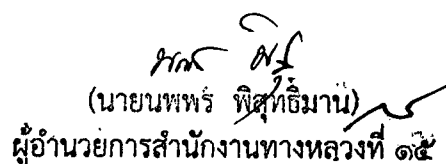 (นายนพพร พิสุทธิ์มาน)
ผู้อำนวยการสำนักงานทางหลวงที่ ๑๕